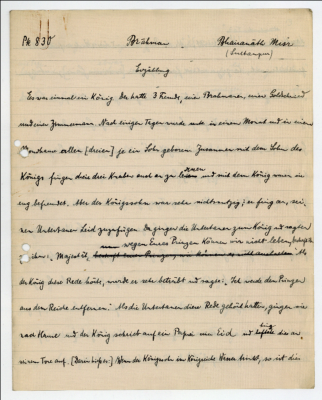 Pk 830 Brahman Bhavanath Misr
(Sultanpur)
Erzählung
Es war einmal ein König. Der hatte 3 Freunde, einen Brahmanen, einen Goldschmied
und einen Zimmermann. Nach einigen Tagen wurde in einem Monat und in einem
allen [dreien] je ein Sohn geboren. Zusammen mit dem Sohn des
Königs fingen diese drei Knaben auch an zu und mit dem König waren sie
eng befreundet. Aber der Königssohn war sehr er fing an, sei-
nen Untertanen Leid zuzufügen. Da gingen die Untertanen zum König und sagten
ihm: Majestät, wegen Eures Prinzen können wir nicht leben. Als
der König diese Rede hörte, wurde er sehr betrübt und sagte: Ich werde den Prinzen
aus dem Reiche entfernen. Als die Untertanen diese Rede gehört hatten, gingen sie
nach Hause und der König schrieb auf ein Papier einen Eid und hing dies an
einem Tore auf. [Darin hieß es:] Wenn der Königssohn im Königreiche Wasser trinkt, so ist dies